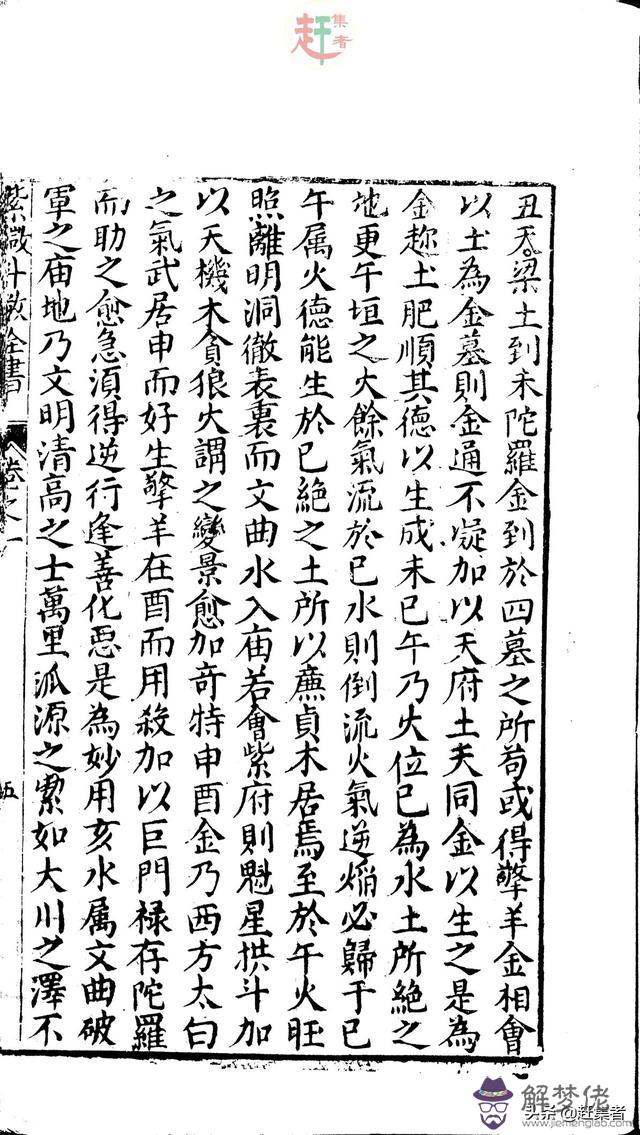 赶集者
丑天梁土到未陀羅金到於四墓之所苟或得擎羊金相會
以土為金墓則金通不凝加以天府土天同金以生之是為
金趂土肥順其德以生成未巳午乃火位巳為水土所絶之
地更午垣之火餘氣流於巳水則倒流火氣逆焰必歸于巳
午属火德能生於巳絶之土所以廉貞木居焉至於午火旺
照離明洞徹表裏而文曲水入庙若會紫府則魁星拱斗加
以天機木貪狼火謂之變景愈加奇特申酉金乃西方太白
之氣武居申而好生擎羊在酉而用殺加以巨門禄存陀羅
而助之愈急須得逆行逢善化悪是為妙用亥水属文曲破
軍之庙地乃文明清高之士萬里泒源之潔如大川之澤不
紫微斗数全書
卷之一
五
解梦佬
头条@赶集者
www.jiemenglao8.com